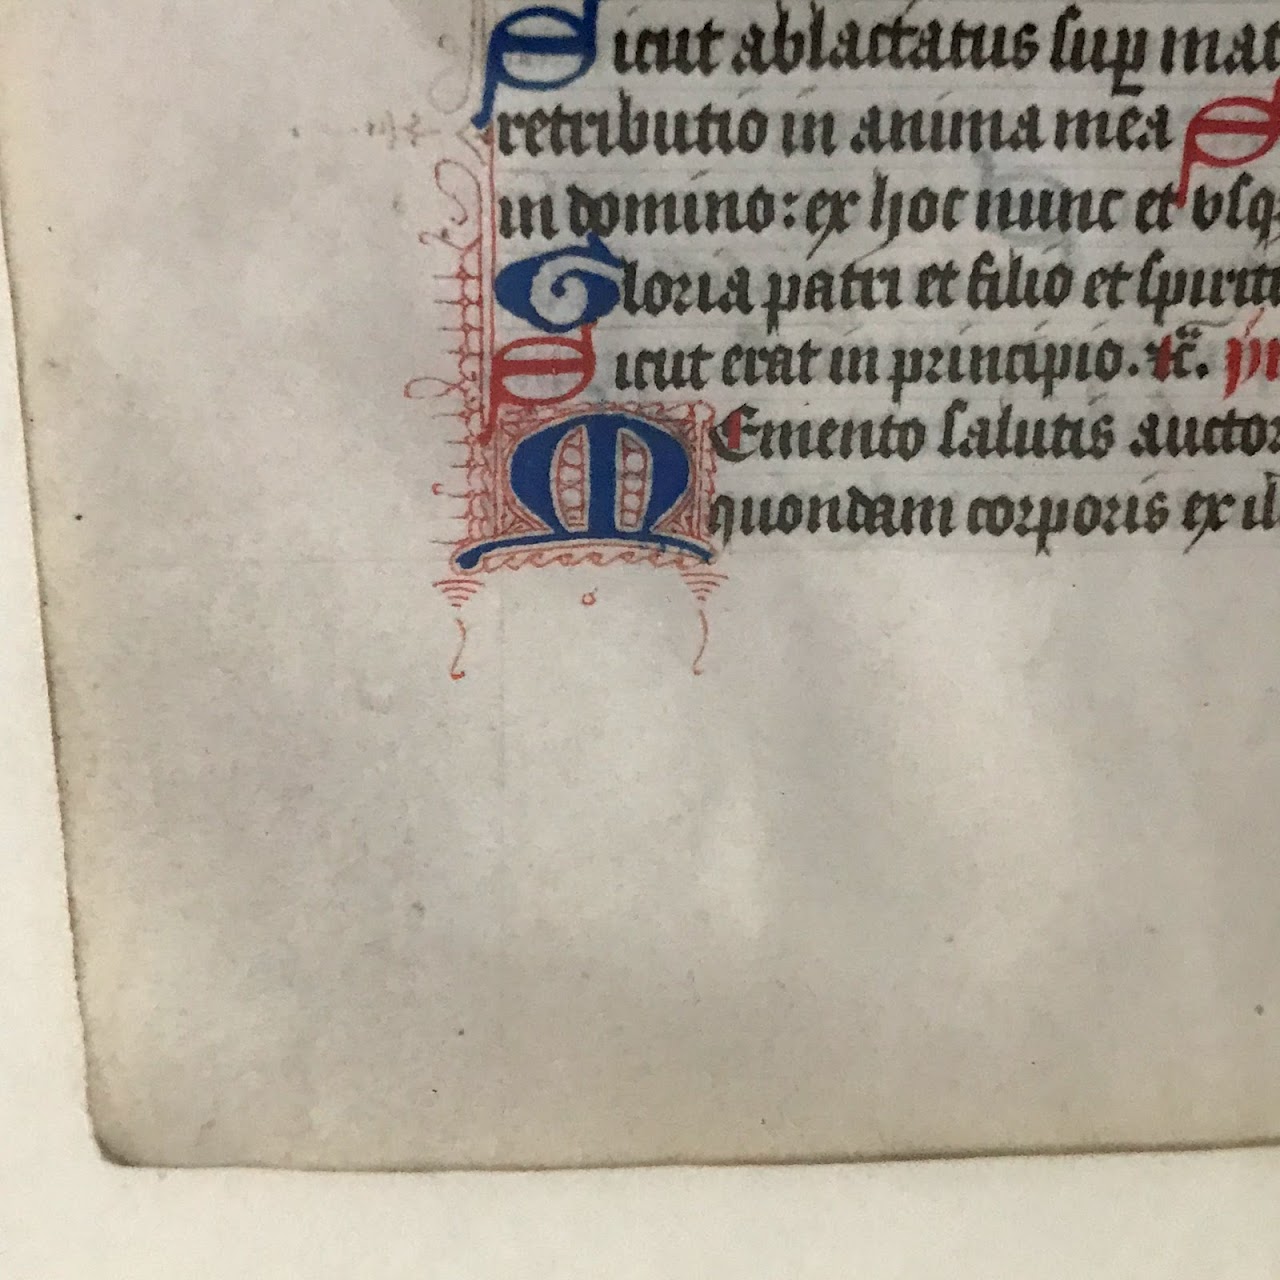 Sicut ablactatus sup mat
retributio in anima mea S
in domino: ex hoc nunc et vsq
Gloria patri et filio et spirit
Sicut erat in principio. ⁊c̄.
MEmento salutis auctor
quondam corporis ex il